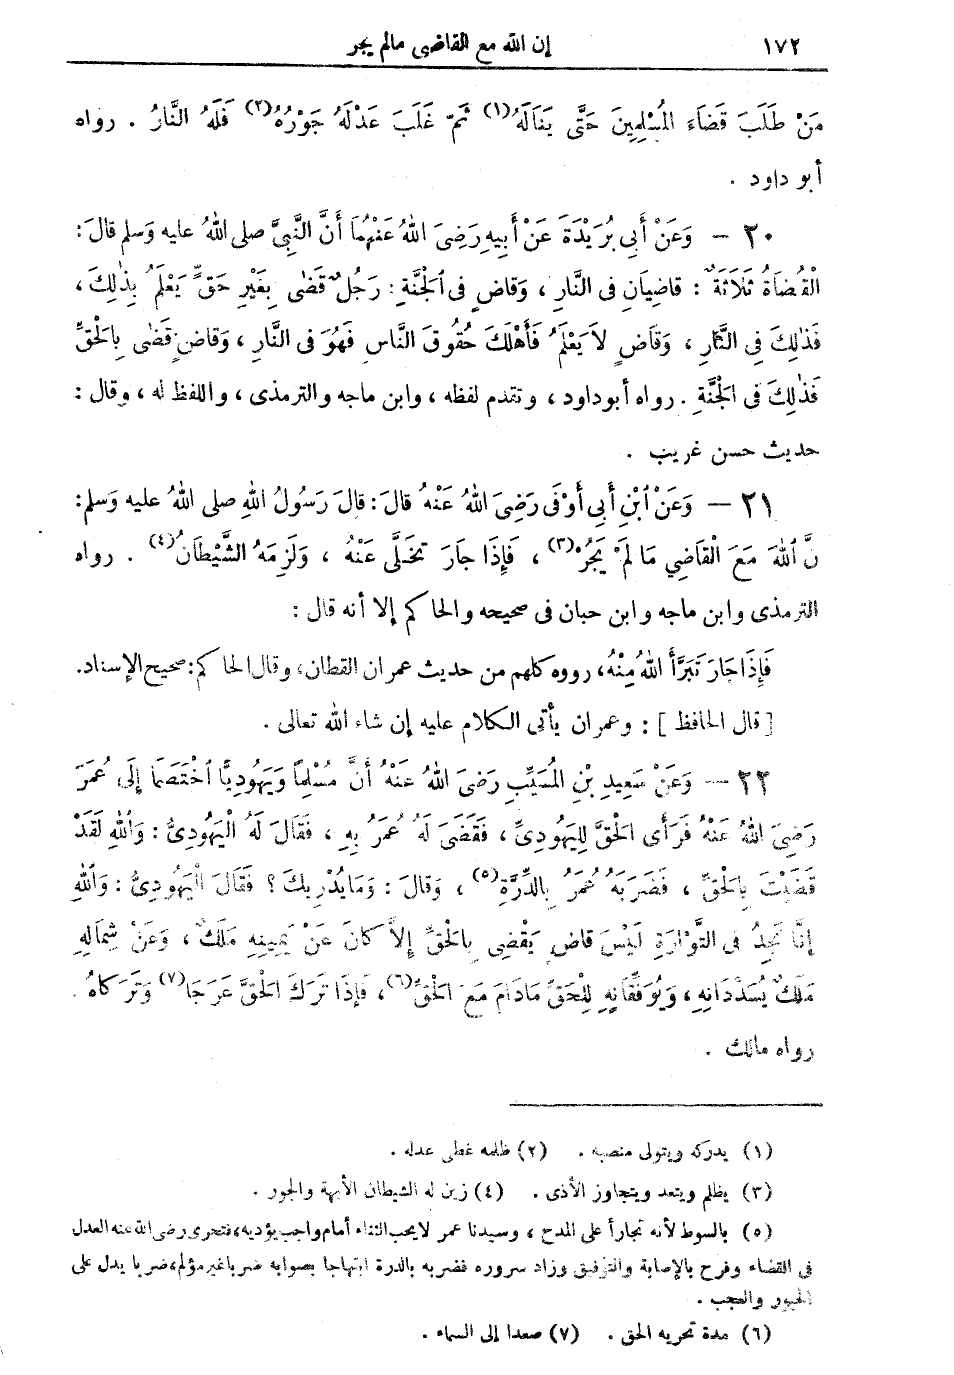 ١٧٢ إن الله مع القاضى مالم يجر
مَنْ طَلَبَ قَضَاءَ المُسْلِمِينَ حَتَّى يَنَالَهُ(١) ثُمَّ غَلَبَ عَدْلَهُ جَوْرُهُ(٢) فَلَهُ النَّارُ . رواه
أبو داود .
٢٠ — وَعَنْ أَبِي بُرَيْدَةَ عَنْ أَبِيهِ رَضِيَ اللهُ عَنْهُمَا أَنَّ النَّبِيَّ صلى اللهُ عليه وَسلم قالَ :
الْقُضَاةُ ثَلاَثَةٌ : قاضِيَانِ فى النَّارِ ، وَقاضٍ فى الجَنَّةِ : رَجُلٌ قَضٰى بِغَيْرِ حَقٍّ يَعْلَمُ بِذٰلِكَ ،
فَذٰلِكَ فِي النَّارِ ، وَقَاضٍ لاَ يَعْلَمُ فَأَهْلَكَ حُقُوقَ النَّاسِ فَهُوَ فى النَّارِ ، وَقاضٍ قَضٰى بِالْحَقِّ
فَذٰلِكَ فى الْجَنَّةِ . رواه أبوداود ، وتقدم لفظه ، وابن ماجه والترمذى ، واللفظ له ، وقال :
حديث حسن غريب .
٢١ — وَعَنْ ابْنِ أَبِي أَوْفَى رَضِيَ اللهُ عَنْهُ قالَ : قالَ رَسُولُ اللهِ صلى اللهُ عليه وَسلم :
نَّ اللهَ مَعَ الْقَاضِي مَا لَمْ يَجُرْ(٣) ، فَإِذَا جَارَ تَخَلَّى عَنْهُ ، وَلَزِمَهُ الشَّيْطَانُ(٤) . رواه
الترمذى وابن ماجه وابن حبان فى صحيحه والحاكم إلا أنه قال :
فَإِذَا جَارَ تَبَرَّأَ اللهُ مِنْهُ، رووه كلهم من حديث عمران القطان، وقال الحاكم: صحيح الإسناد.
[ قال الحافظ ] : وعمران يأتى الكلام عليه إن شاء الله تعالى .
٢٢ — وَعَنْ سَعِيدِ بْنِ الْمُسَيِّبِ رَضِيَ اللهُ عَنْهُ أَنَّ مُسْلِمًا وَيَهُودِيًّا اخْتَصَمَا إِلَى عُمَرَ
رَضِيَ اللهُ عَنْهُ فَرَأَى الْحَقَّ لِلْيَهُودِيِّ ، فَقَضَى لَهُ عُمَرُ بِهِ ، فَقَالَ لَهُ الْيَهُودِيُّ : وَاللهِ لَقَدْ
قَضَيْتَ بِالْحَقِّ ، فَضَرَبَهُ عُمَرُ بِالدِّرَّةِ(٥) ، وَقالَ : وَمَا يُدْرِيكَ ؟ فَقَالَ الْيَهُودِيُّ : وَاللهِ
إِنَّا نَجِدُ فى التَّوْرَاةِ لَيْسَ قَاضٍ يَقْضِى بِالْحَقِّ إِلاَّ كانَ عَنْ يَمِينِهِ مَلَكٌ ، وَعَنْ شِمَالِهِ
مَلَكٌ يُسَدِّدَانِهِ ، وَيُوَفِّقَانِهِ لِلْحَقِّ مَادَامَ مَعَ الْحَقِّ(٦) ، فَإِذَا تَرَكَ الْحَقَّ عَرَجَا(٧) وَتَرَكَاهُ .
رواه مالك .
(١) يدركه ويتولى منصبه . (٢) ظلمه غطى عدله .
(٣) يظلم ويتعد ويتجاوز الأذى . (٤) زين له الشيطان الأبهة والجور .
(٥) بالسوط لأنه تجارأ على المدح ، وسيدنا عمر لا يحب الثناء أمام واجب يؤديه، فتحرى رضى الله عنه العدل
فى القضاء وفرح بالإصابة والتوفيق وزاد سروره فضربه بالدرة ابتهاجا بصوابه ضربا غير مؤلم، ضربا يدل على
الحبور والعجب .
(٦) مدة تحريه الحق . (٧) صعدا إلى السماء .